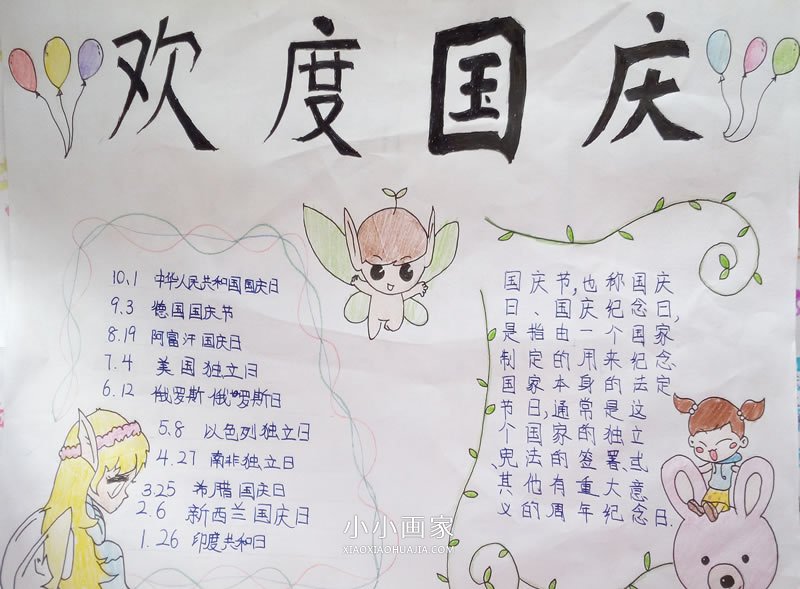 欢度国庆
10.1 中华人民共和国国庆日
9.3 德国国庆节
8.19 阿富汗国庆日
7.4 美国独立日
6.12 俄罗斯俄罗斯日
5.8 以色列独立日
4.27 南非独立日
3.25 希腊国庆日
2.6 新西兰国庆日
1.26 印度共和日
国庆节,也称国庆
日、国庆纪念日,
是指由一个国家
制定的用来纪念
国家本身的法定
节日,通常是这
个国家的独立
、宪法的签署、式
其他有重大意
义的周年纪念日.
小小画家
XIAOXIAOHUAJIA.COM